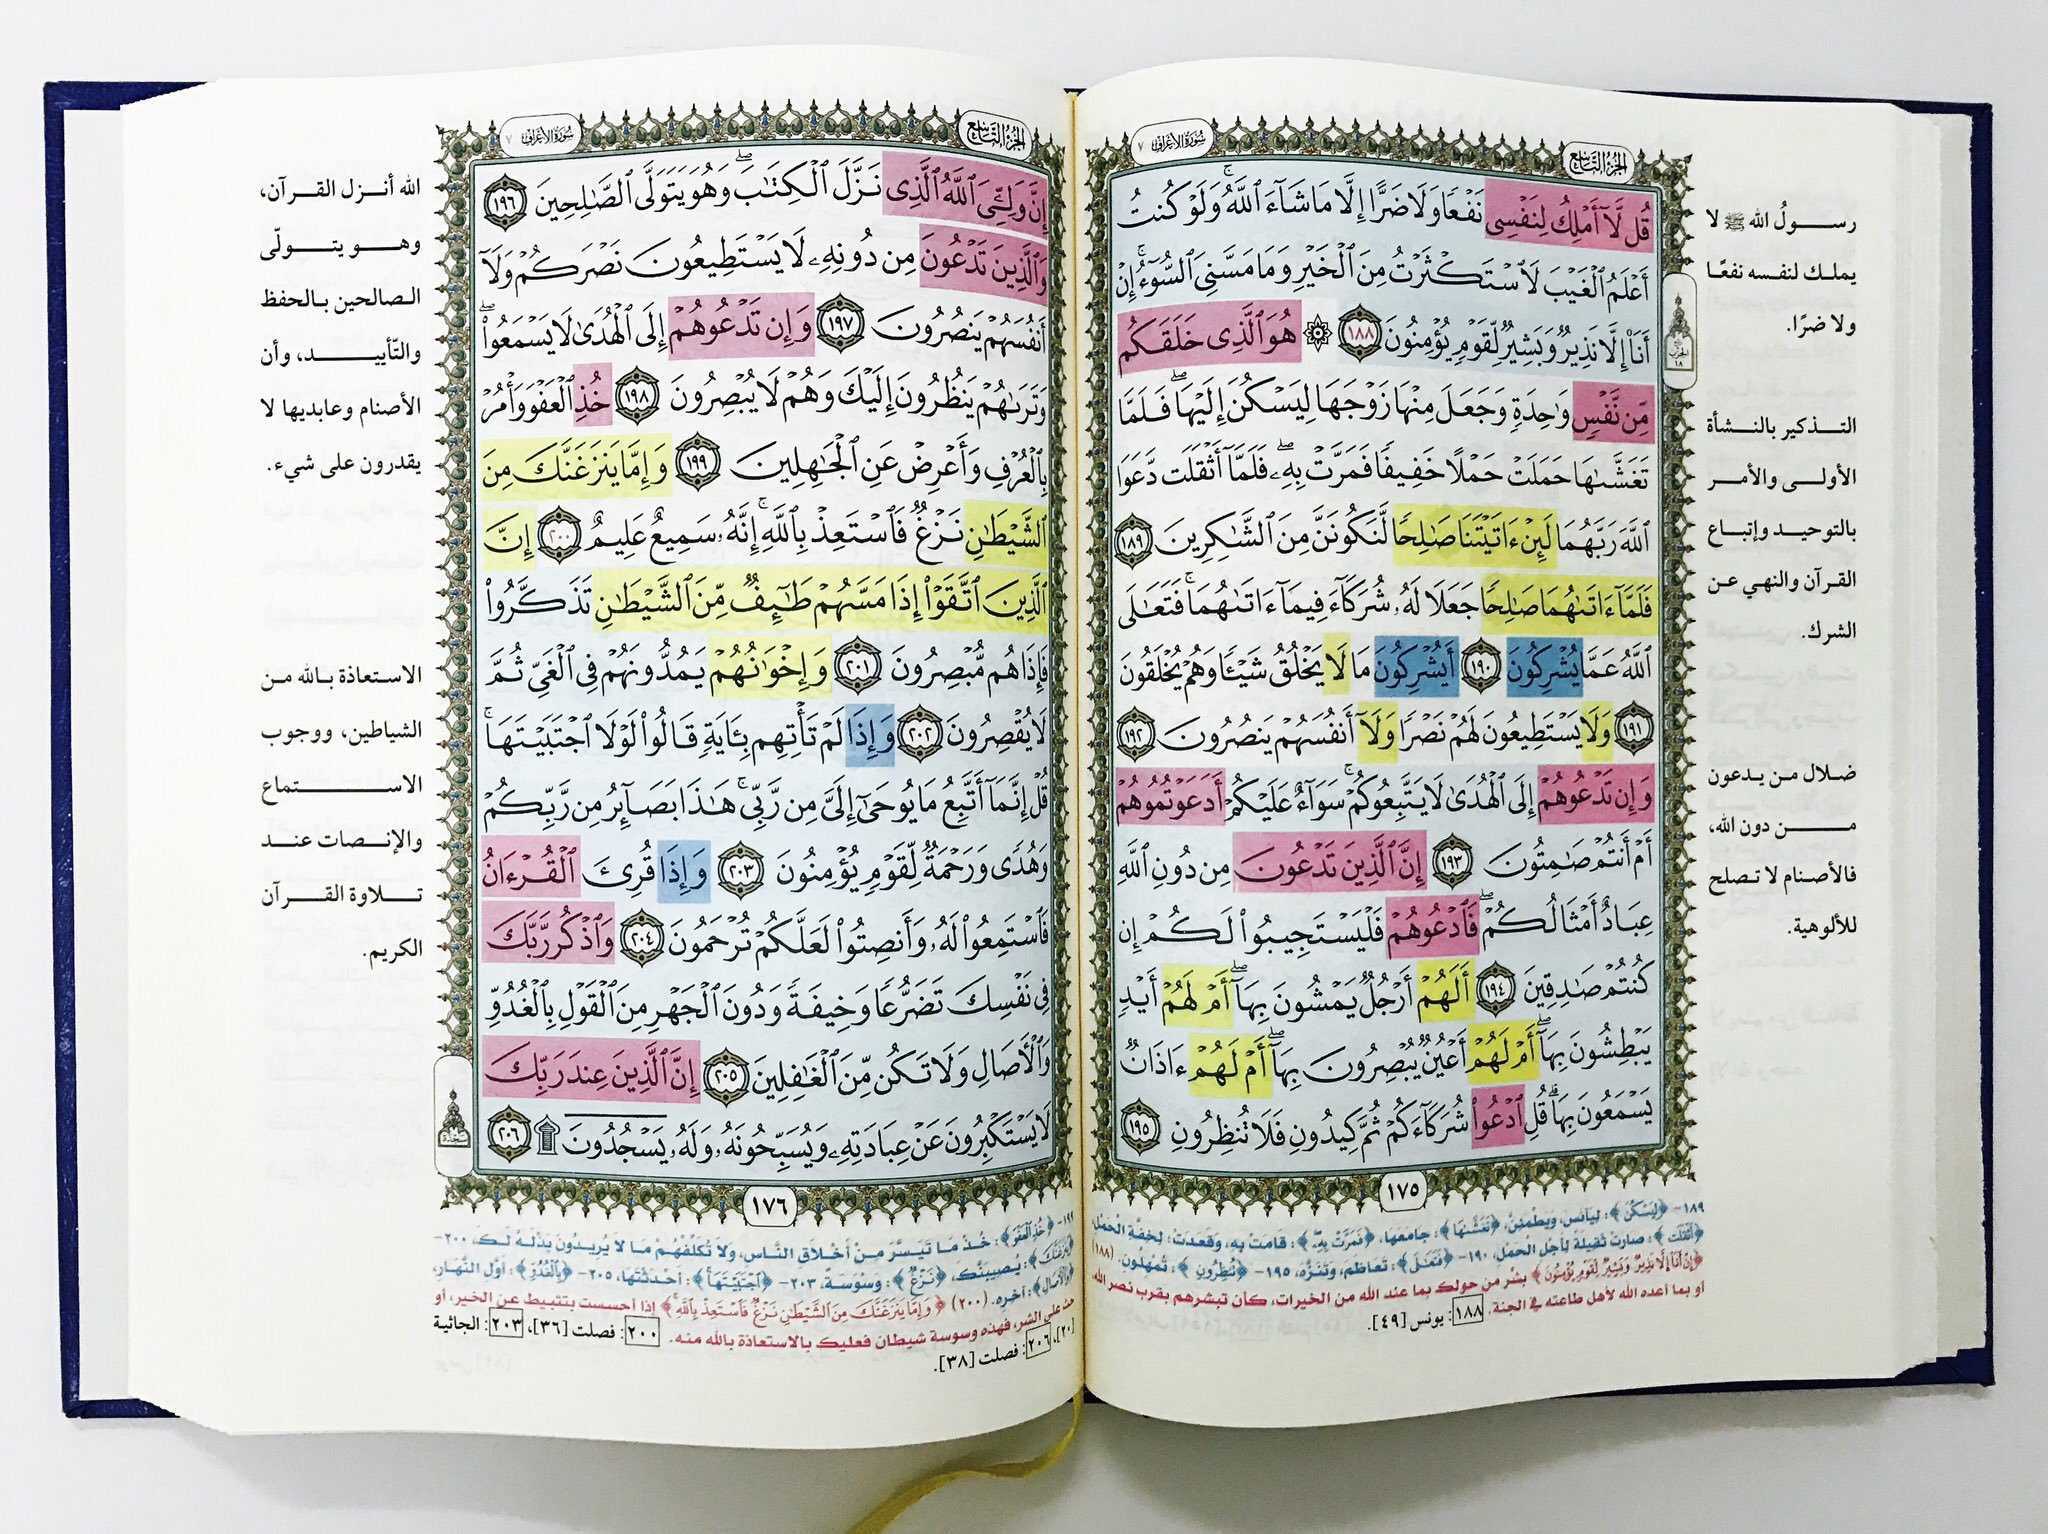 سورة الأعراف ٧
الجزء التاسع
قُل لَّآ أَمْلِكُ لِنَفْسِى نَفْعًا وَلَا ضَرًّا إِلَّا مَا شَآءَ ٱللَّهُ ۚ وَلَوْ كُنتُ
أَعْلَمُ ٱلْغَيْبَ لَٱسْتَكْثَرْتُ مِنَ ٱلْخَيْرِ وَمَا مَسَّنِىَ ٱلسُّوٓءُ ۚ إِنْ
أَنَا۠ إِلَّا نَذِيرٌ وَبَشِيرٌ لِّقَوْمٍ يُؤْمِنُونَ ١٨٨ ۞ هُوَ ٱلَّذِى خَلَقَكُم
مِّن نَّفْسٍ وَٰحِدَةٍ وَجَعَلَ مِنْهَا زَوْجَهَا لِيَسْكُنَ إِلَيْهَا ۖ فَلَمَّا
تَغَشَّىٰهَا حَمَلَتْ حَمْلًا خَفِيفًا فَمَرَّتْ بِهِۦ ۖ فَلَمَّآ أَثْقَلَت دَّعَوَا
ٱللَّهَ رَبَّهُمَا لَئِنْ ءَاتَيْتَنَا صَٰلِحًا لَّنَكُونَنَّ مِنَ ٱلشَّٰكِرِينَ ١٨٩
فَلَمَّآ ءَاتَىٰهُمَا صَٰلِحًا جَعَلَا لَهُۥ شُرَكَآءَ فِيمَآ ءَاتَىٰهُمَا ۚ فَتَعَٰلَى
ٱللَّهُ عَمَّا يُشْرِكُونَ ١٩٠ أَيُشْرِكُونَ مَا لَا يَخْلُقُ شَيْـًٔا وَهُمْ يُخْلَقُونَ
١٩١ وَلَا يَسْتَطِيعُونَ لَهُمْ نَصْرًا وَلَآ أَنفُسَهُمْ يَنصُرُونَ ١٩٢
وَإِن تَدْعُوهُمْ إِلَى ٱلْهُدَىٰ لَا يَتَّبِعُوكُمْ ۚ سَوَآءٌ عَلَيْكُمْ أَدَعَوْتُمُوهُمْ
أَمْ أَنتُمْ صَٰمِتُونَ ١٩٣ إِنَّ ٱلَّذِينَ تَدْعُونَ مِن دُونِ ٱللَّهِ
عِبَادٌ أَمْثَالُكُمْ ۖ فَٱدْعُوهُمْ فَلْيَسْتَجِيبُوا۟ لَكُمْ إِن
كُنتُمْ صَٰدِقِينَ ١٩٤ أَلَهُمْ أَرْجُلٌ يَمْشُونَ بِهَآ ۖ أَمْ لَهُمْ أَيْدٍ
يَبْطِشُونَ بِهَآ ۖ أَمْ لَهُمْ أَعْيُنٌ يُبْصِرُونَ بِهَآ ۖ أَمْ لَهُمْ ءَاذَانٌ
يَسْمَعُونَ بِهَا ۗ قُلِ ٱدْعُوا۟ شُرَكَآءَكُمْ ثُمَّ كِيدُونِ فَلَا تُنظِرُونِ ١٩٥
١٧٥
رسـولُ الله ﷺ لا
يملك لنفسه نفعًا
ولا ضرًا.
التذكير بالنشأة
الأولى والأمر
بالتوحيد وإتباع
القرآن والنهي عن
الشرك.
ضلال من يدعون
من دون الله،
فالأصنام لا تصلح
للألوهية.
الحزب ١٨
١٨٩- ﴿لِيَسْكُنَ﴾: ليأنس، ويطمئن، ﴿تَغَشَّىٰهَا﴾: جامعها، ﴿فَمَرَّتْ بِهِ﴾: قامت به، وقعدت؛ لخفة الحمل،
﴿أَثْقَلَت﴾: صارت ثقيلة لأجل الحمل، ١٩٠- ﴿فَتَعَٰلَى﴾: تعاظم، وتنزه، ١٩٥- ﴿تُنظِرُونِ﴾: تمهلون. (١٨٨)
﴿إِنْ أَنَا۠ إِلَّا نَذِيرٌ وَبَشِيرٌ لِّقَوْمٍ يُؤْمِنُونَ﴾ بشر من حولك بما عند الله من الخيرات، كأن تبشرهم بقرب نصر الله،
أو بما أعده الله لأهل طاعته في الجنة. ١٨٨: يونس [٤٩].
سورة الأعراف ٧
الجزء التاسع
إِنَّ وَلِـِّۧىَ ٱللَّهُ ٱلَّذِى نَزَّلَ ٱلْكِتَٰبَ ۖ وَهُوَ يَتَوَلَّى ٱلصَّٰلِحِينَ ١٩٦
وَٱلَّذِينَ تَدْعُونَ مِن دُونِهِۦ لَا يَسْتَطِيعُونَ نَصْرَكُمْ وَلَآ
أَنفُسَهُمْ يَنصُرُونَ ١٩٧ وَإِن تَدْعُوهُمْ إِلَى ٱلْهُدَىٰ لَا يَسْمَعُوا۟ ۖ
وَتَرَىٰهُمْ يَنظُرُونَ إِلَيْكَ وَهُمْ لَا يُبْصِرُونَ ١٩٨ خُذِ ٱلْعَفْوَ وَأْمُرْ
بِٱلْعُرْفِ وَأَعْرِضْ عَنِ ٱلْجَٰهِلِينَ ١٩٩ وَإِمَّا يَنزَغَنَّكَ مِنَ
ٱلشَّيْطَٰنِ نَزْغٌ فَٱسْتَعِذْ بِٱللَّهِ ۚ إِنَّهُۥ سَمِيعٌ عَلِيمٌ ٢٠٠ إِنَّ
ٱلَّذِينَ ٱتَّقَوْا۟ إِذَا مَسَّهُمْ طَٰٓئِفٌ مِّنَ ٱلشَّيْطَٰنِ تَذَكَّرُوا۟
فَإِذَا هُم مُّبْصِرُونَ ٢٠١ وَإِخْوَٰنُهُمْ يَمُدُّونَهُمْ فِى ٱلْغَىِّ ثُمَّ
لَا يُقْصِرُونَ ٢٠٢ وَإِذَا لَمْ تَأْتِهِم بِـَٔايَةٍ قَالُوا۟ لَوْلَا ٱجْتَبَيْتَهَا ۚ
قُلْ إِنَّمَآ أَتَّبِعُ مَا يُوحَىٰٓ إِلَىَّ مِن رَّبِّى ۚ هَٰذَا بَصَآئِرُ مِن رَّبِّكُمْ
وَهُدًى وَرَحْمَةٌ لِّقَوْمٍ يُؤْمِنُونَ ٢٠٣ وَإِذَا قُرِئَ ٱلْقُرْءَانُ
فَٱسْتَمِعُوا۟ لَهُۥ وَأَنصِتُوا۟ لَعَلَّكُمْ تُرْحَمُونَ ٢٠٤ وَٱذْكُر رَّبَّكَ
فِى نَفْسِكَ تَضَرُّعًا وَخِيفَةً وَدُونَ ٱلْجَهْرِ مِنَ ٱلْقَوْلِ بِٱلْغُدُوِّ
وَٱلْـَٔاصَالِ وَلَا تَكُن مِّنَ ٱلْغَٰفِلِينَ ٢٠٥ إِنَّ ٱلَّذِينَ عِندَ رَبِّكَ
لَا يَسْتَكْبِرُونَ عَنْ عِبَادَتِهِۦ وَيُسَبِّحُونَهُۥ وَلَهُۥ يَسْجُدُونَ ۩ ٢٠٦
١٧٦
الله أنزل القرآن،
وهو يتولّى
الصالحين بالحفظ
والتّأييد، وأن
الأصنام وعابديها لا
يقدرون على شيء.
الاستعاذة بالله من
الشياطين، ووجوب
الاستماع
والإنصات عند
تلاوة القرآن
الكريم.
سجدة
١٩٩- ﴿خُذِ ٱلْعَفْوَ﴾: خذ ما تيسر من أخلاق الناس، ولا تكلفهم ما لا يريدون بذله لك، ٢٠٠-
﴿يَنزَغَنَّكَ﴾: يصيبنك، ﴿نَزْغٌ﴾: وسوسة، ٢٠٣- ﴿ٱجْتَبَيْتَهَا﴾: أحدثتها، ٢٠٥- ﴿بِٱلْغُدُوِّ﴾: أول النهار،
﴿وَٱلْـَٔاصَالِ﴾: آخره. (٢٠٠) ﴿وَإِمَّا يَنزَغَنَّكَ مِنَ ٱلشَّيْطَٰنِ نَزْغٌ فَٱسْتَعِذْ بِٱللَّهِ﴾ إذا أحسست بتثبيط عن الخير، أو
حث على الشر، فهذه وسوسة شيطان فعليك بالاستعاذة بالله منه. ٢٠٠: فصلت [٣٦]، ٢٠٣: الجاثية
[٢٠]، ٢٠٦: فصلت [٣٨].